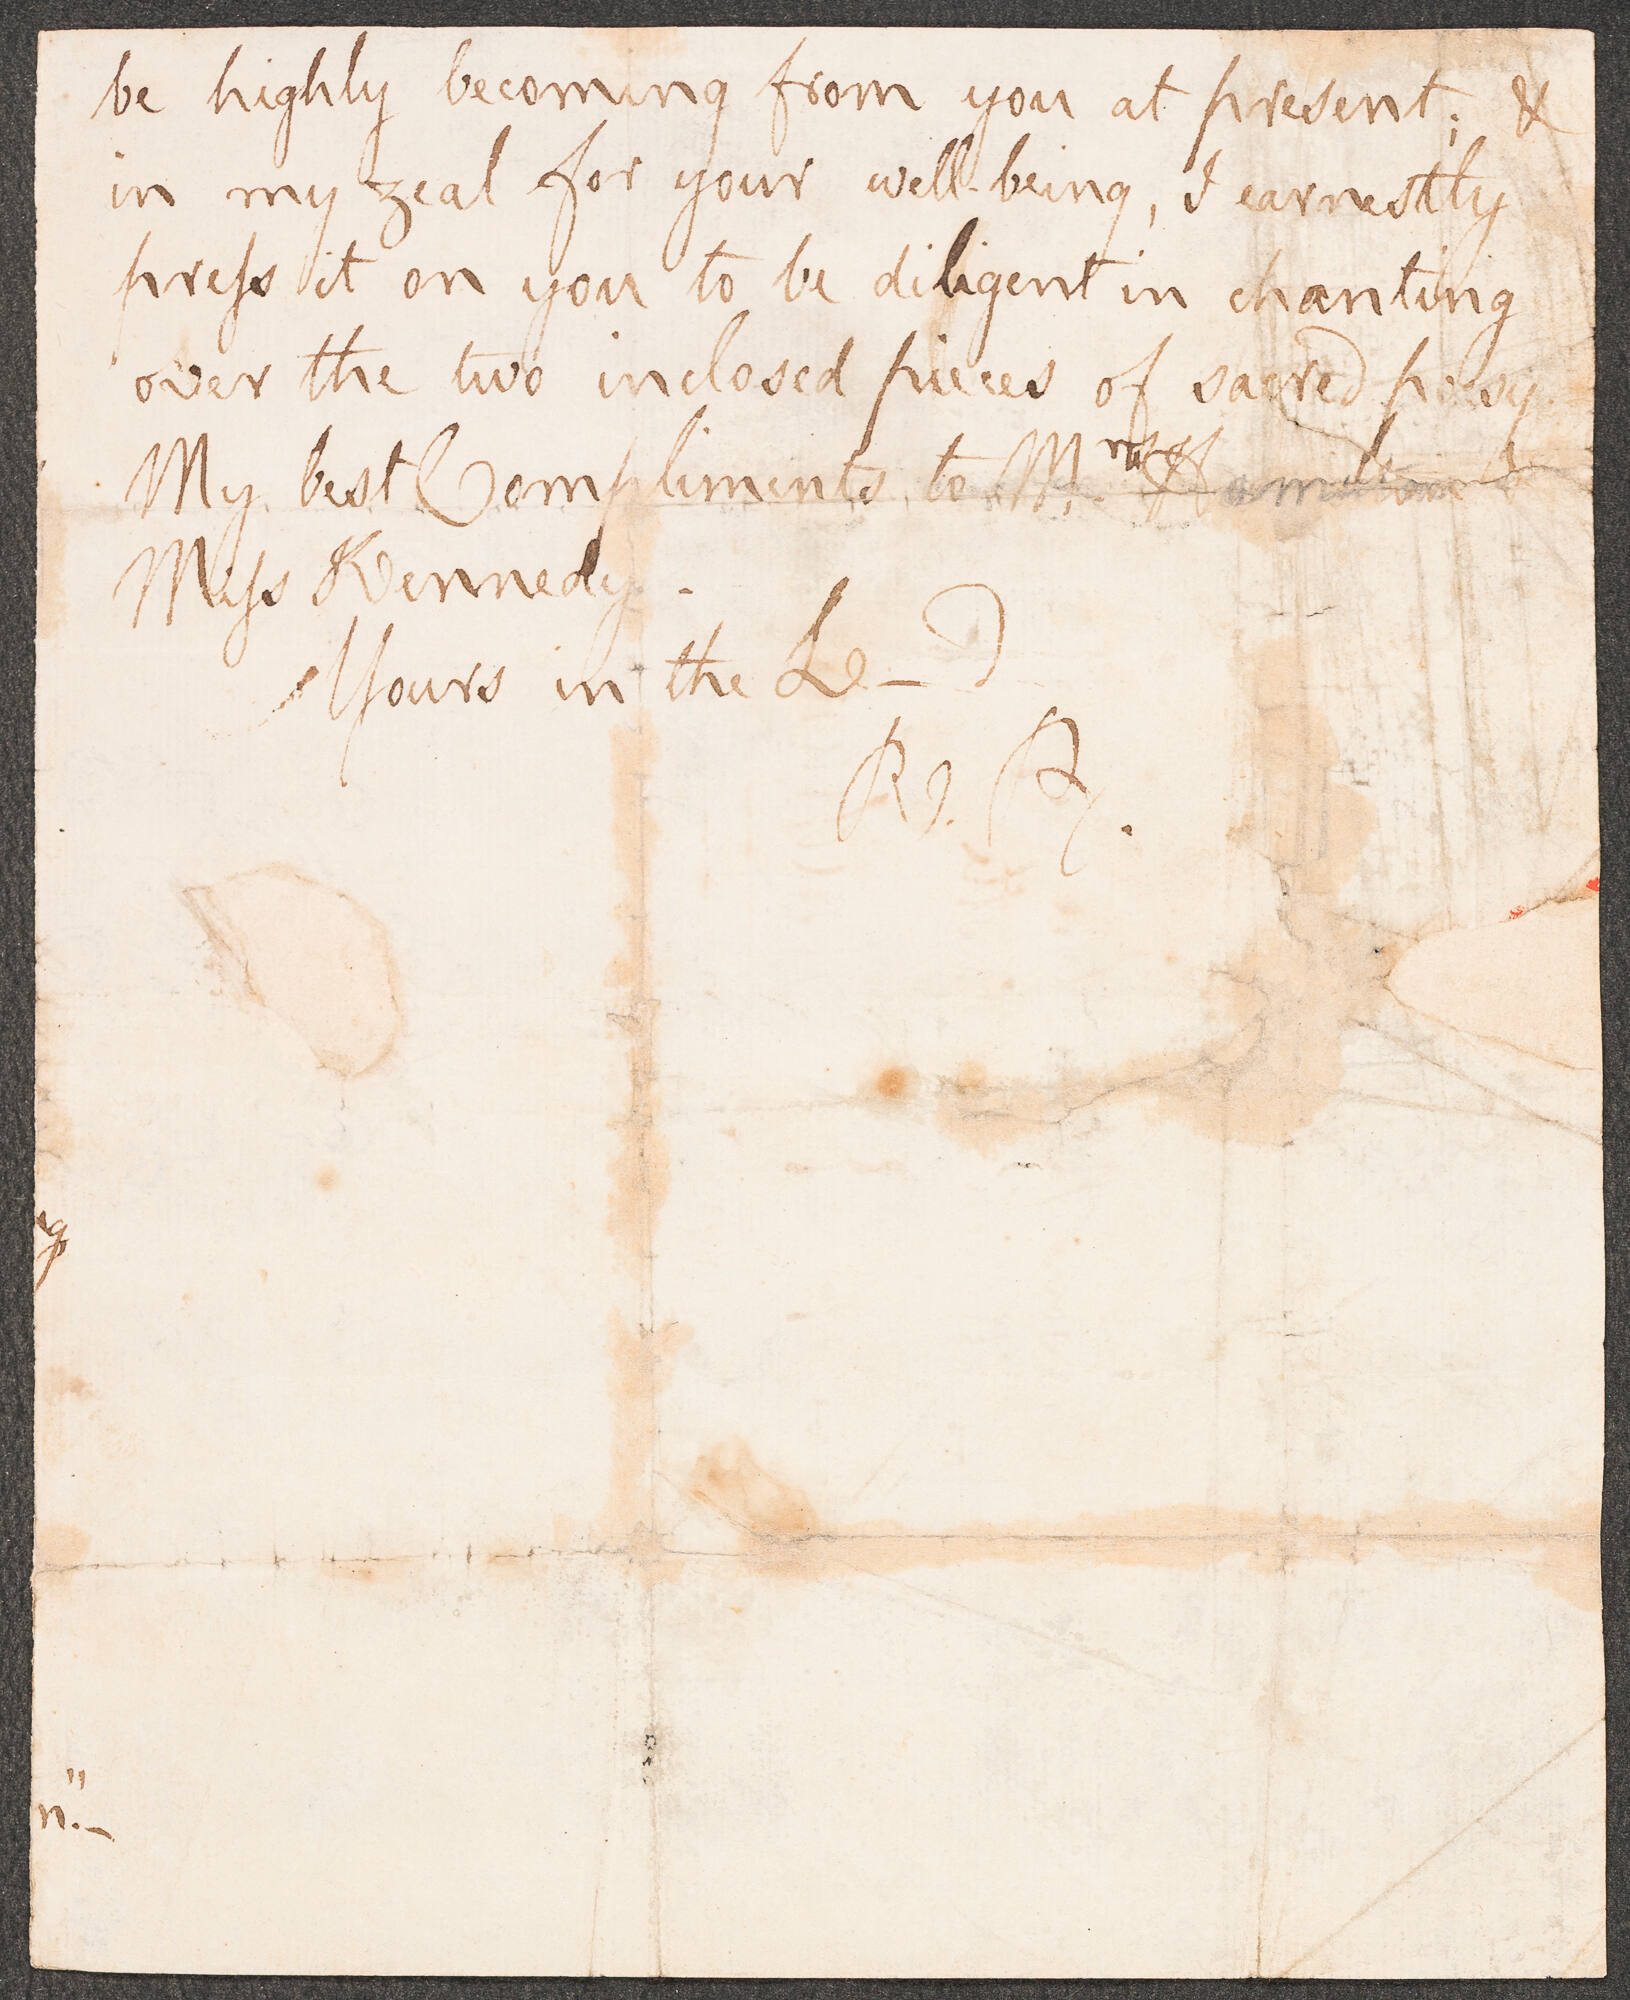 be highly becoming from you at present; &
in my zeal for your well-being, I earnestly
preſs it on you to be diligent in chanting
over the two inclosed pieces of sacred poesy.
My best Compliments to Mrs Hamilton &
Miſs Kennedy.
Yours in the L—d
Rt. B.
g
n."—